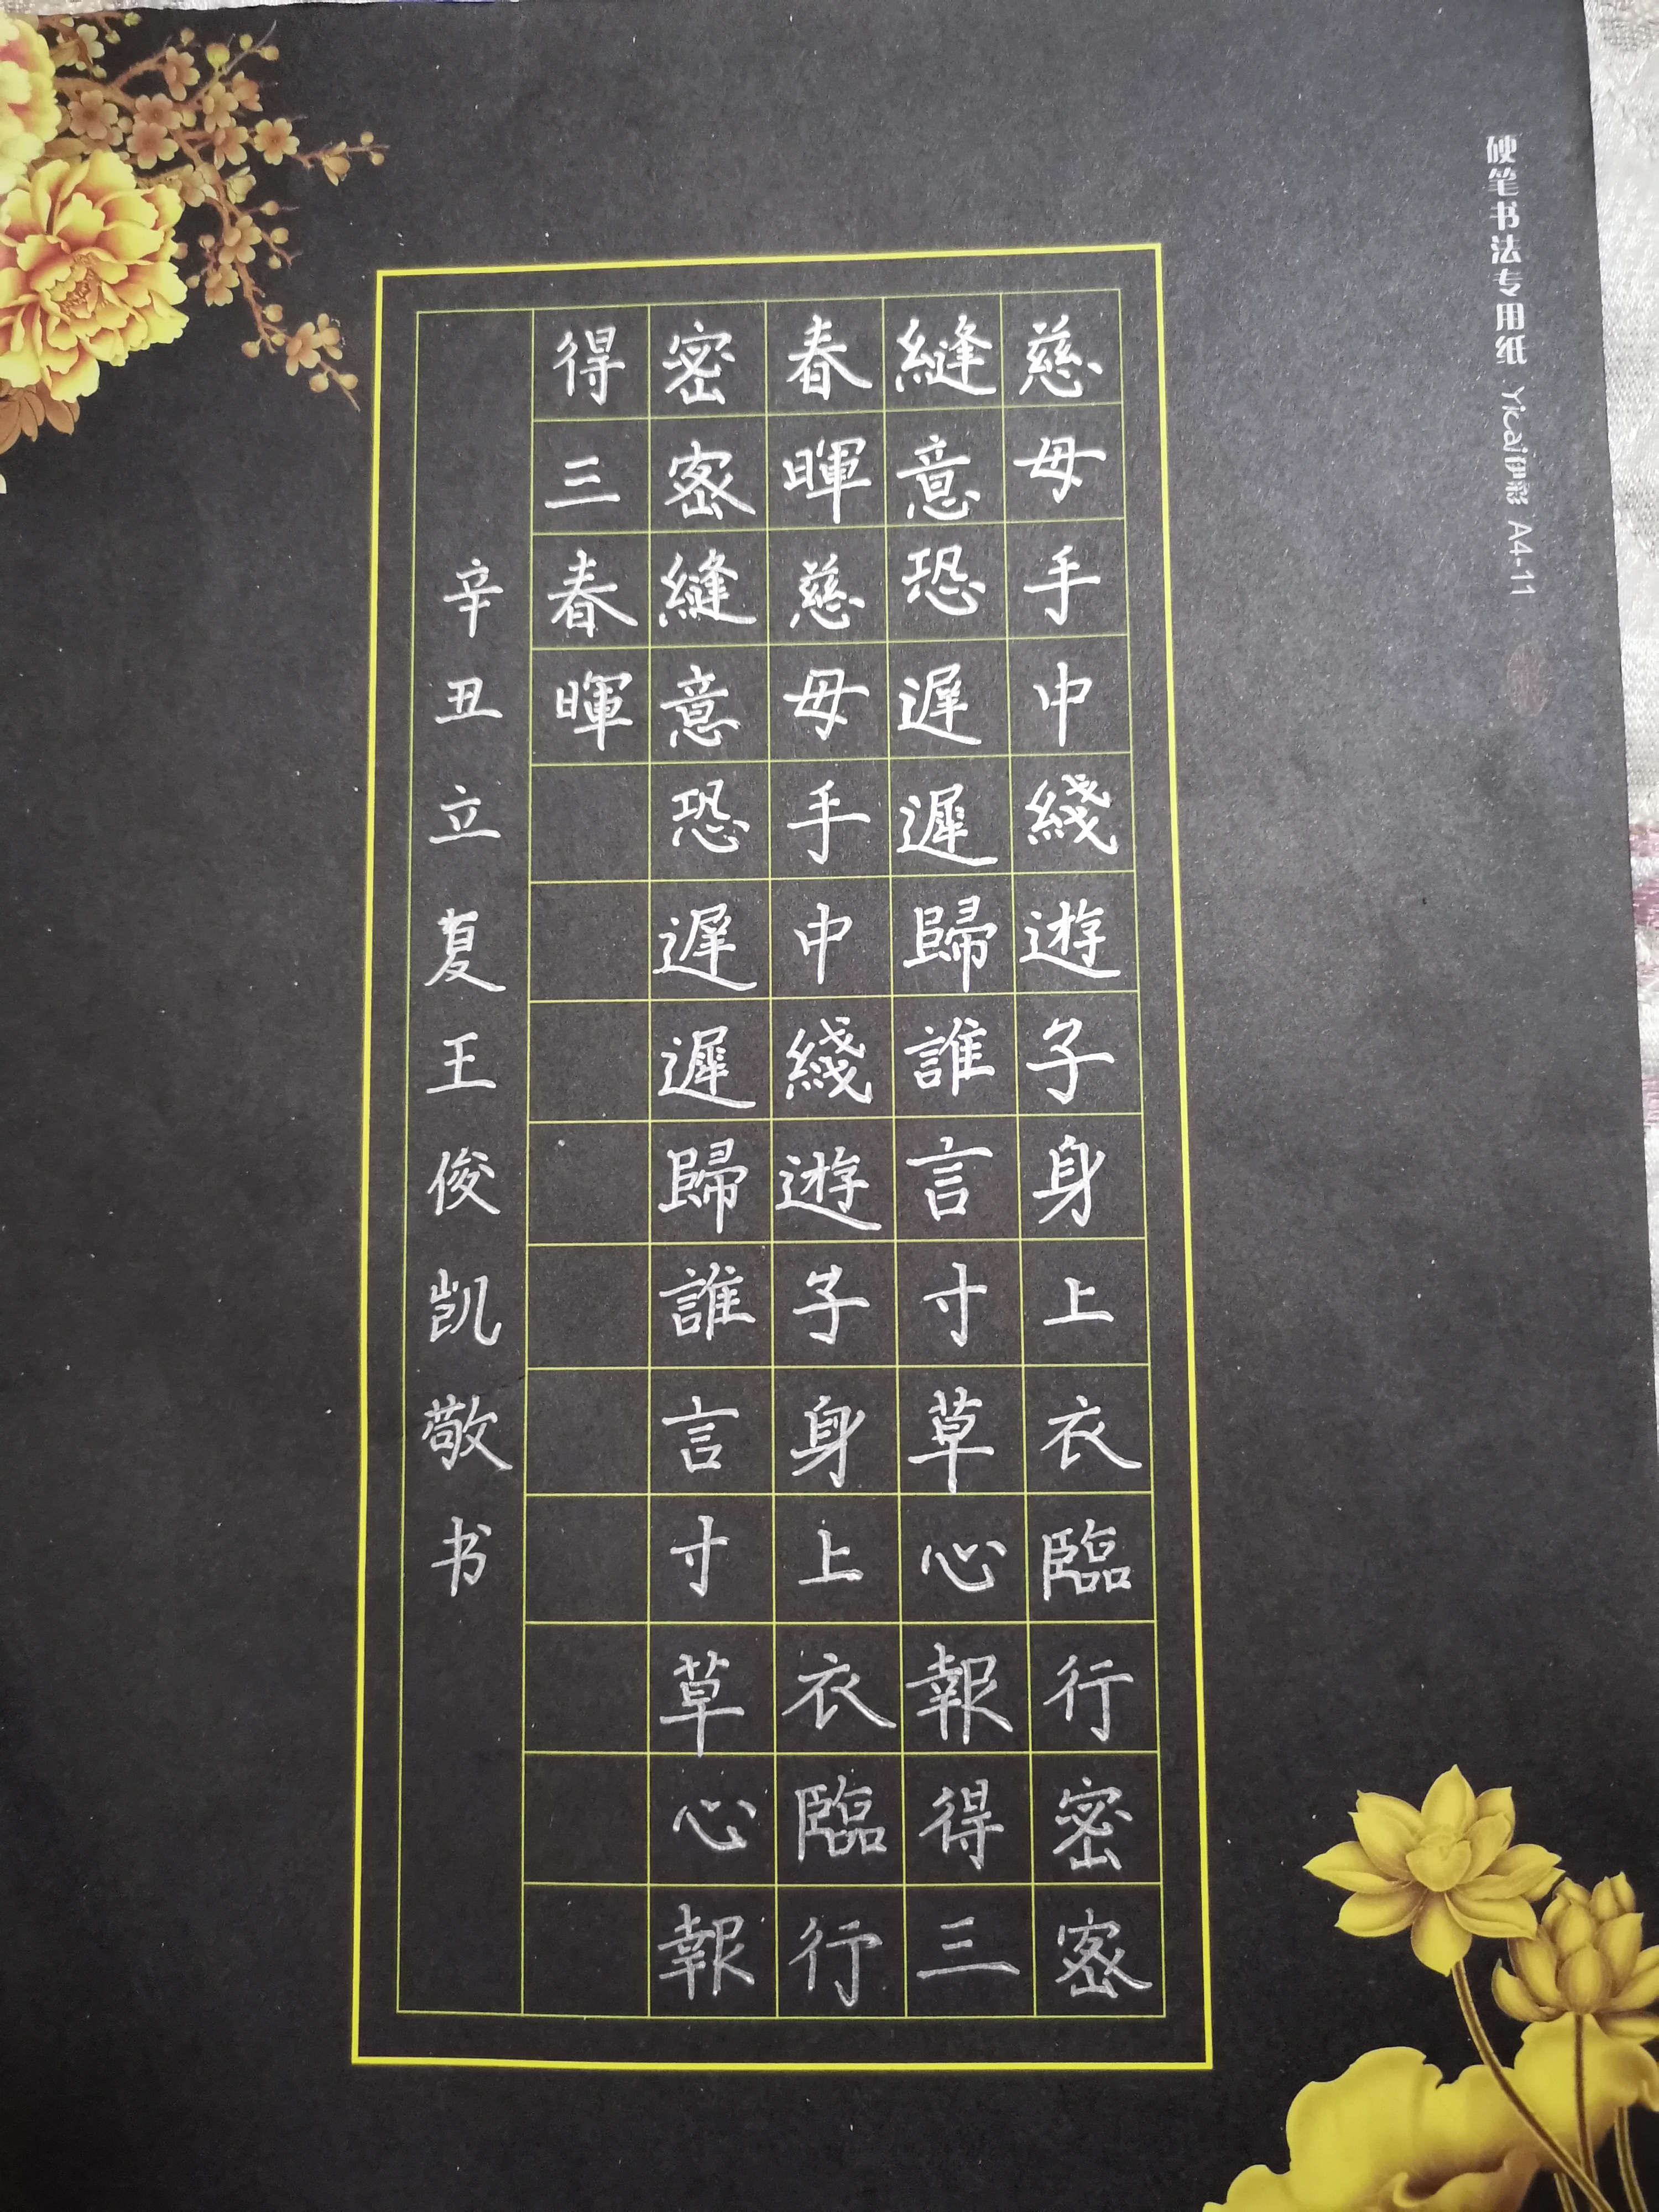 慈母手中綫遊子身上衣臨行密密
縫意恐遲遲歸誰言寸草心報得三
春暉慈母手中綫遊子身上衣臨行
密密縫意恐遲遲歸誰言寸草心報
得三春暉
辛丑立夏王俊凯敬书
硬笔书法专用纸 Yicai伊彩 A4-11